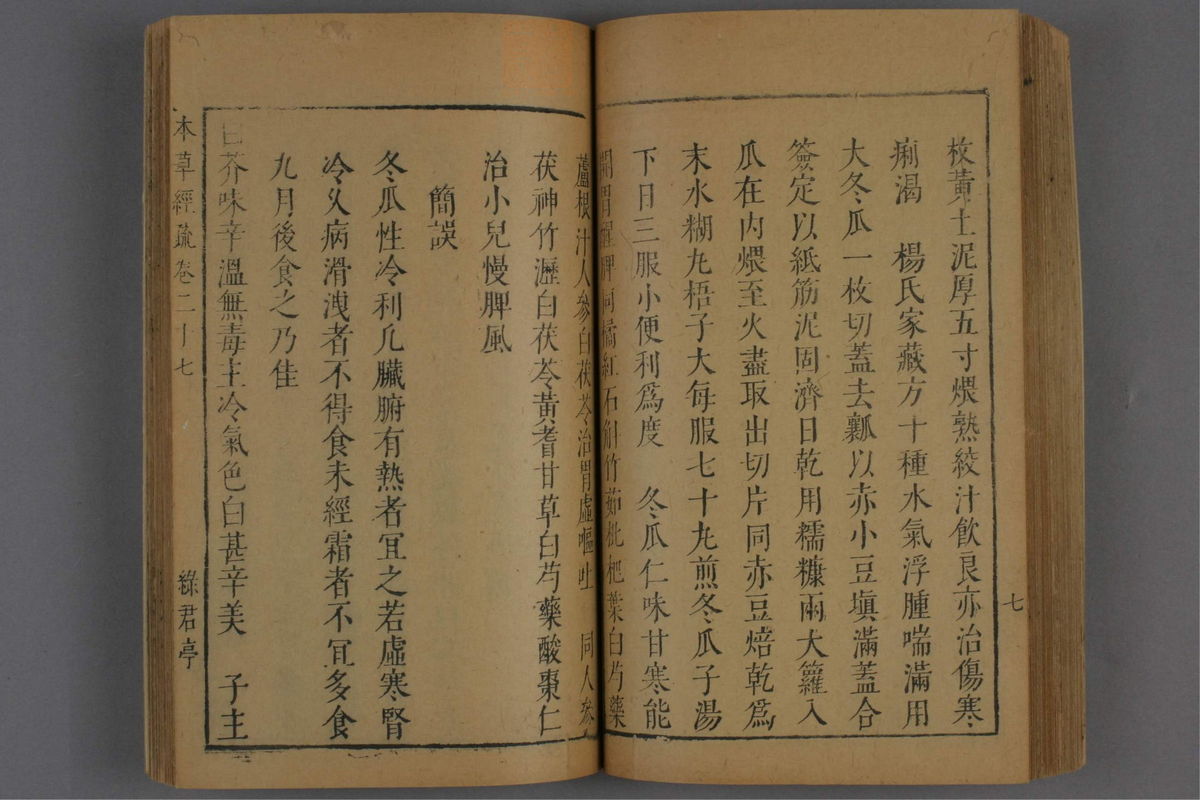 七
枚黃土泥厚五寸煨熟絞汁飲良亦治傷寒
痢渴　楊氏家藏方十種水氣浮腫喘滿用
大冬瓜一枚切蓋去瓤以赤小豆塡滿蓋合
簽定以紙筋泥固濟日乾用糯糠兩大籮入
瓜在內煨至火盡取出切片同赤豆焙乾爲
末水糊丸梧子大每服七十丸煎冬瓜子湯
下日三服小便利爲度　冬瓜仁味甘寒能
開胃醒脾同橘紅石斛竹茹枇杷葉白芍藥
蘆根汁人參白茯苓治胃虛嘔吐　同人參
茯神竹瀝白茯苓黃耆甘草白芍藥酸棗仁
治小兒慢脾風
簡誤
冬瓜性冷利凢臟腑有熱者冝之若虛寒腎
冷久病滑洩者不得食未經霜者不冝多食
九月後食之乃佳
白芥味辛溫無毒主冷氣色白甚辛美　子主
本草經疏卷二十七
綠君亭